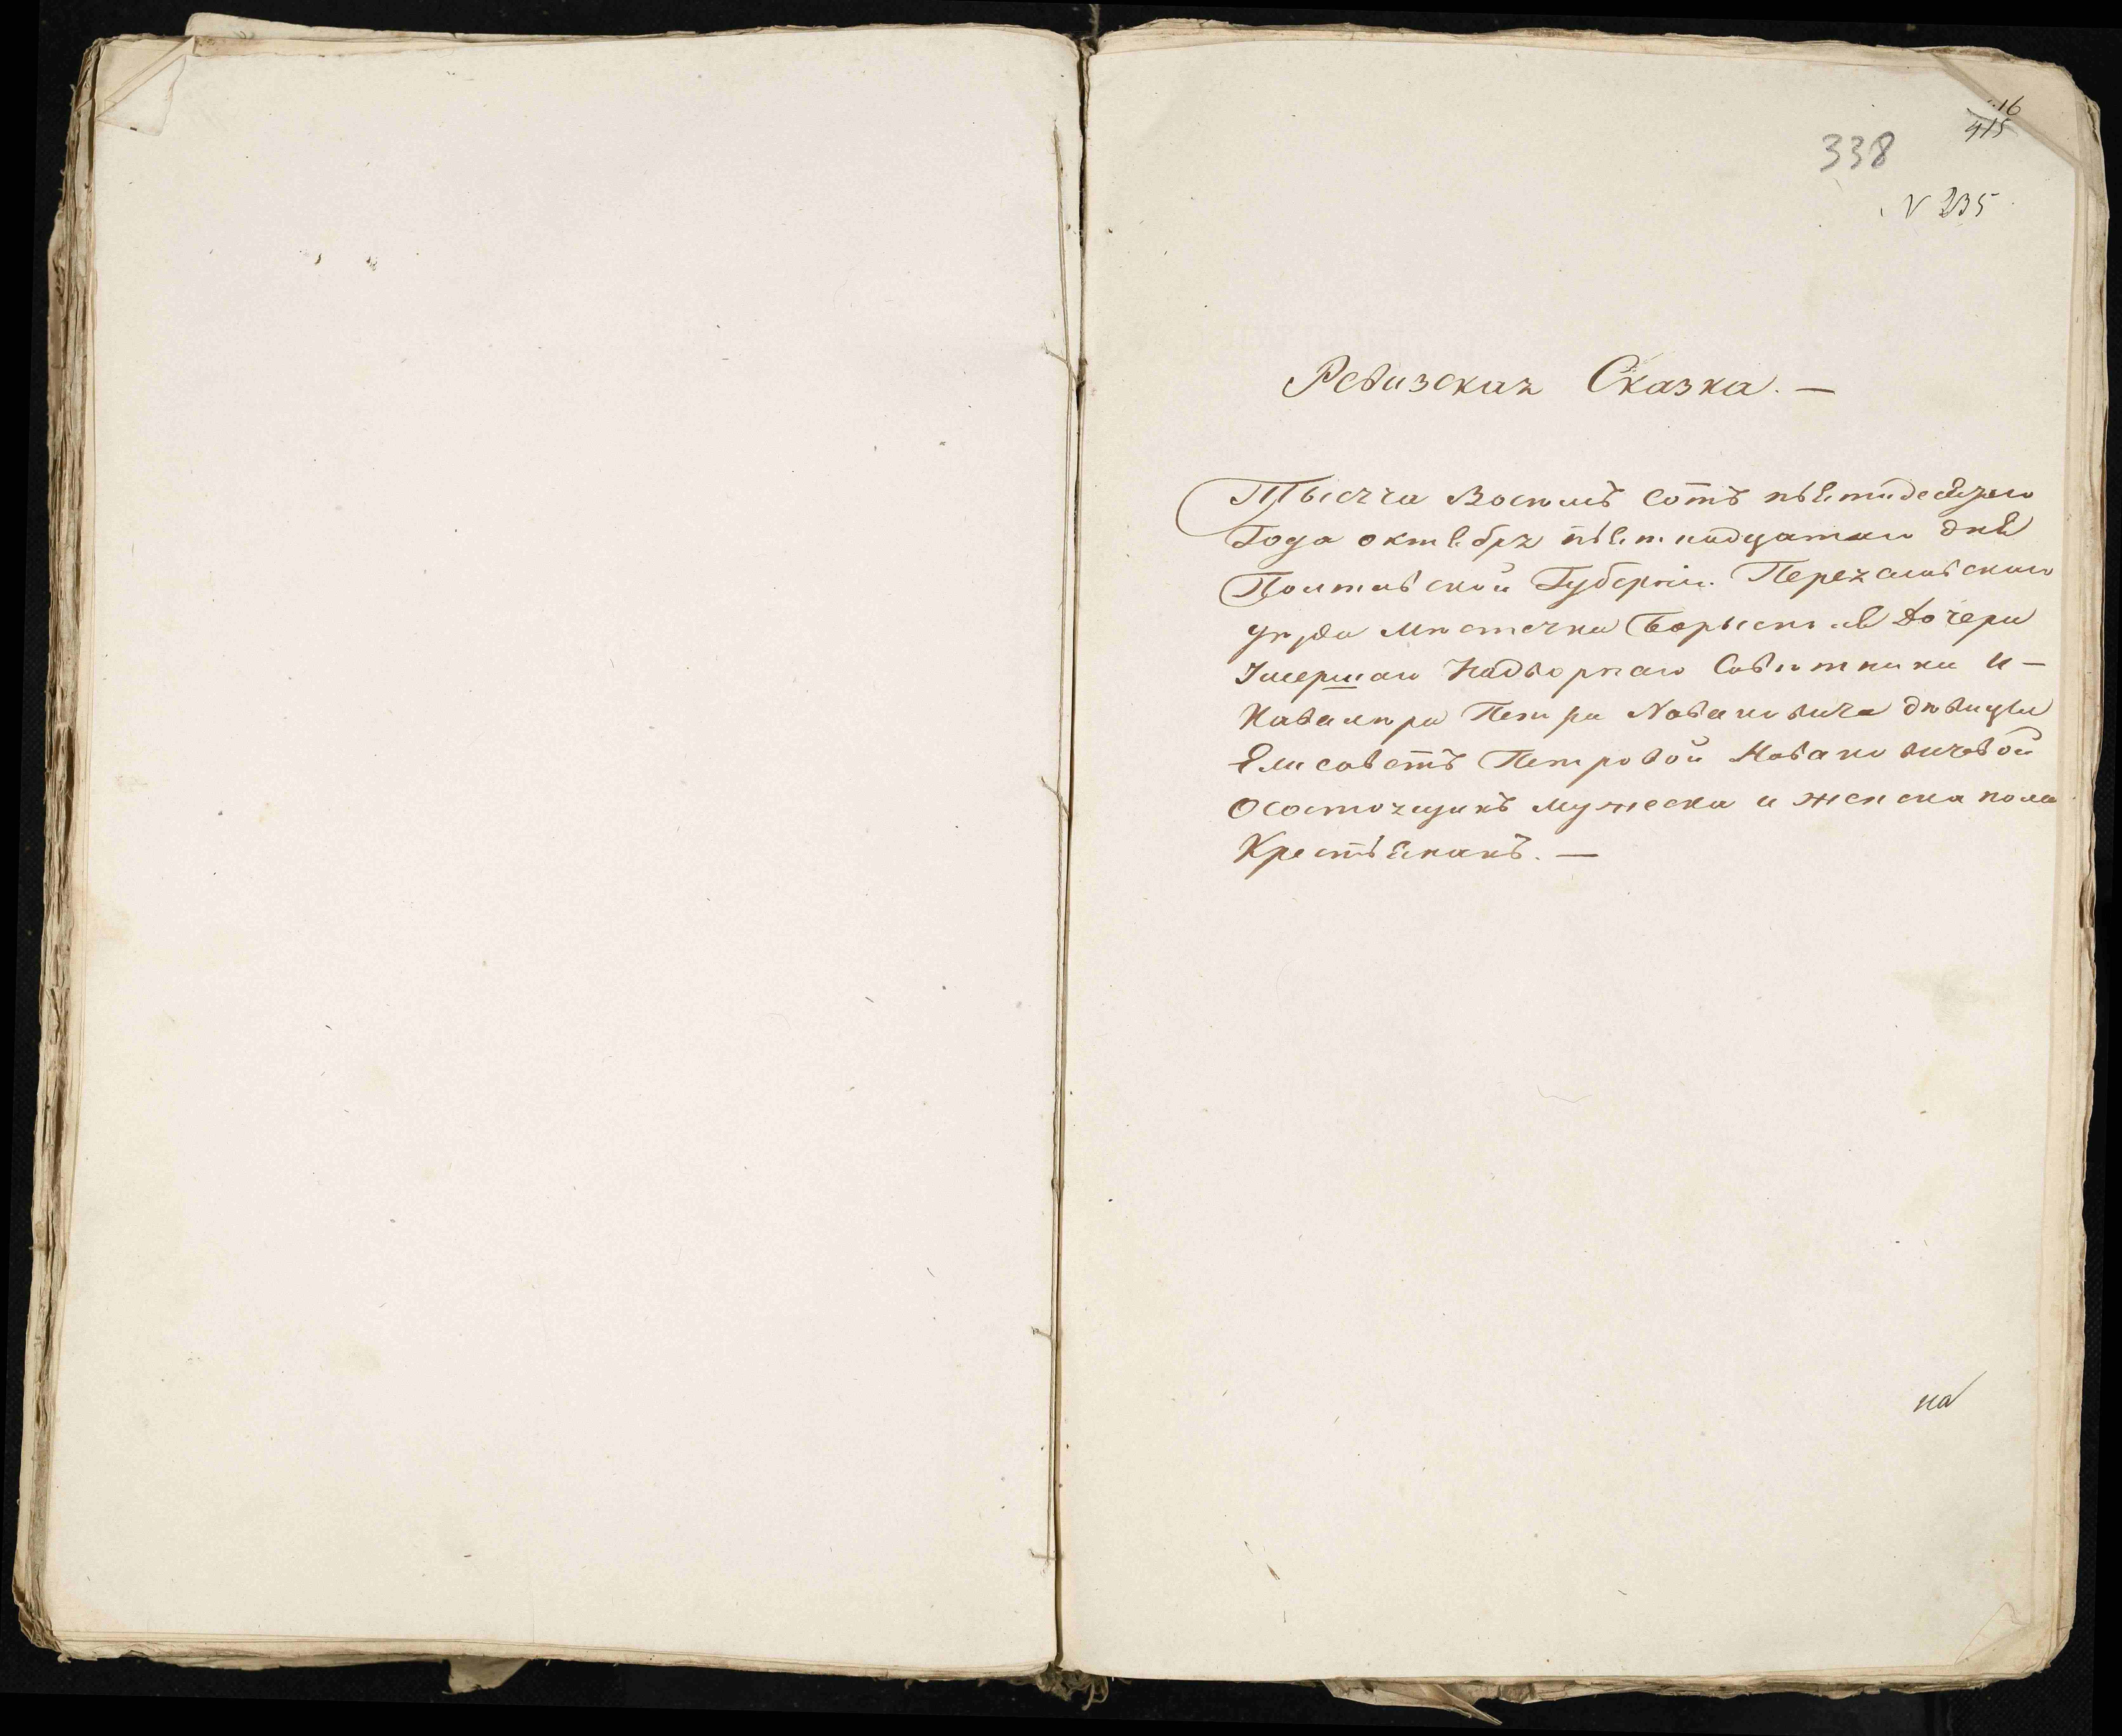 416
415
338
N 235
Ревизская Сказка. —
Тысяча Восемь сотъ пьятидесятаго
Года октября пьятнадцатаго дня
Полтавской Губерніи Переяславскаго
уѣзда мѣстечка Борысполя Дочери
Умершаго Надворнаго Совѣтника и —
Кавалѣра Петра Новаковича дѣвицы
Елисаветѣ Петровой Новаковичевой
О состоящихъ мужеска и женска пола
Крестьянахъ. —
на